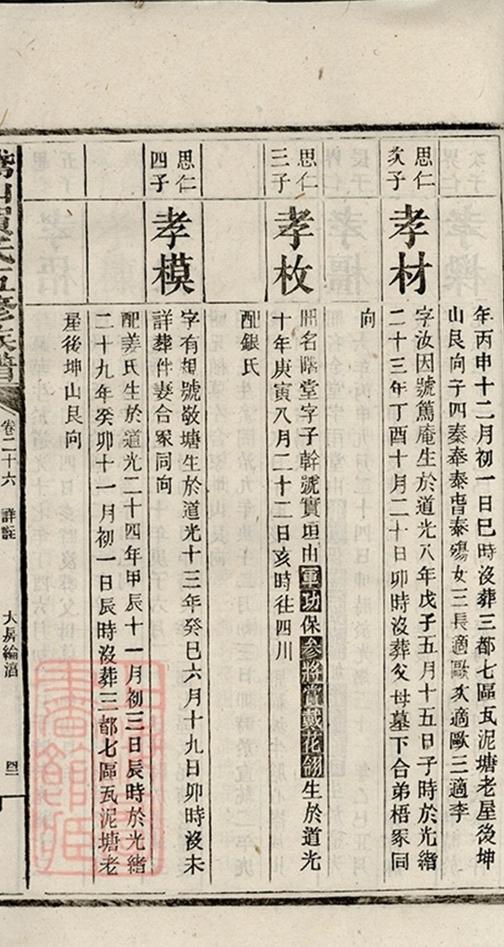 年丙申十二月初一日巳時沒葬三都七區瓦泥塘老屋後坤
山艮向子四秦奉泰春泰瑒女三長適歐次適歐三適李
思仁次子
孝材
字汝因號篤庵生於道光八年戊子五月十五日子時於光緒
二十三年丁酉十月二十日卯時沒葬父母墓下合弟梧冢同
向
思仁三子
孝枚
開名階堂字子幹號實垣由軍功保參將賞戴花翎生於道光
十年庚寅八月二十二日亥時往四川
配銀氏
思仁四子
孝模
字有想號敬塘生於道光十三年癸巳六月十九日卯時沒未
詳葬件妻合冢同向
配姜氏生於道光二十四年甲辰十一月初三日辰時於光緒
二十九年癸卯十一月初一日辰時沒葬三都七區瓦泥塘老
屋後坤山艮向
氏五修族譜
卷二十六
詳註